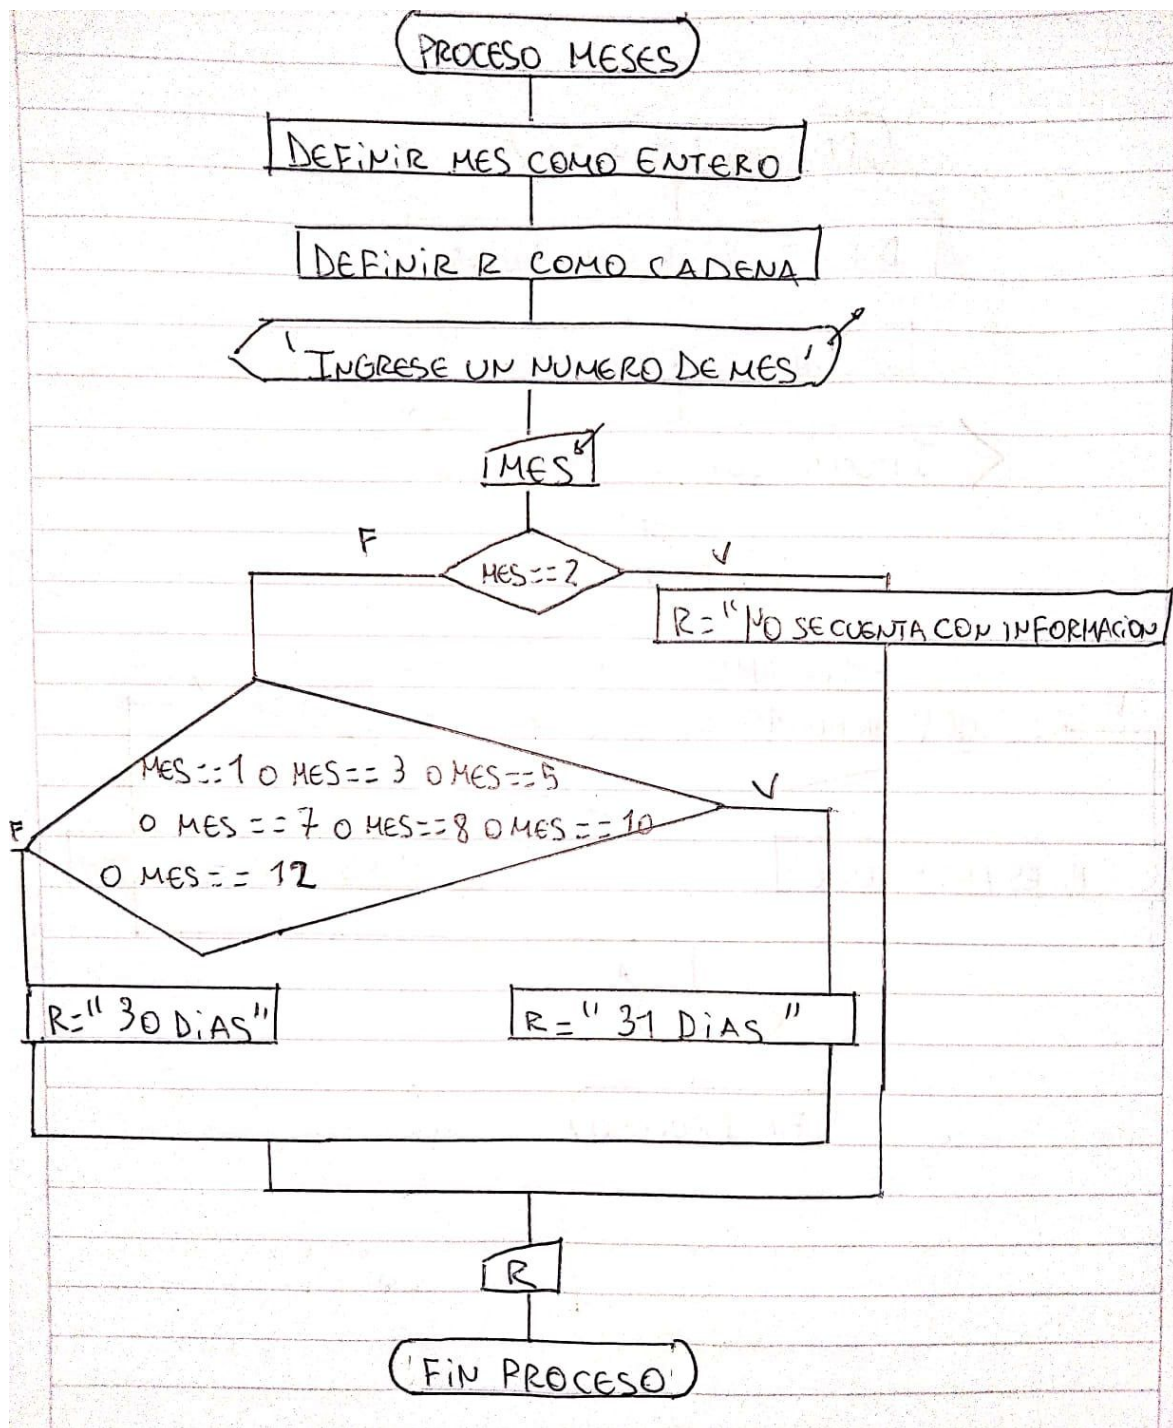 PROCESO MESES
DEFINIR MES COMO ENTERO
DEFINIR R COMO CADENA
'INGRESE UN NUMERO DE MES'
MES
F
MES==2
V
R="NO SE CUENTA CON INFORMACION
MES==1 O MES==3 O MES==5
V
F
O MES==7 O MES==8 O MES==10
O MES==12
R="30 DIAS"
R="31 DIAS"
R
FIN PROCESO